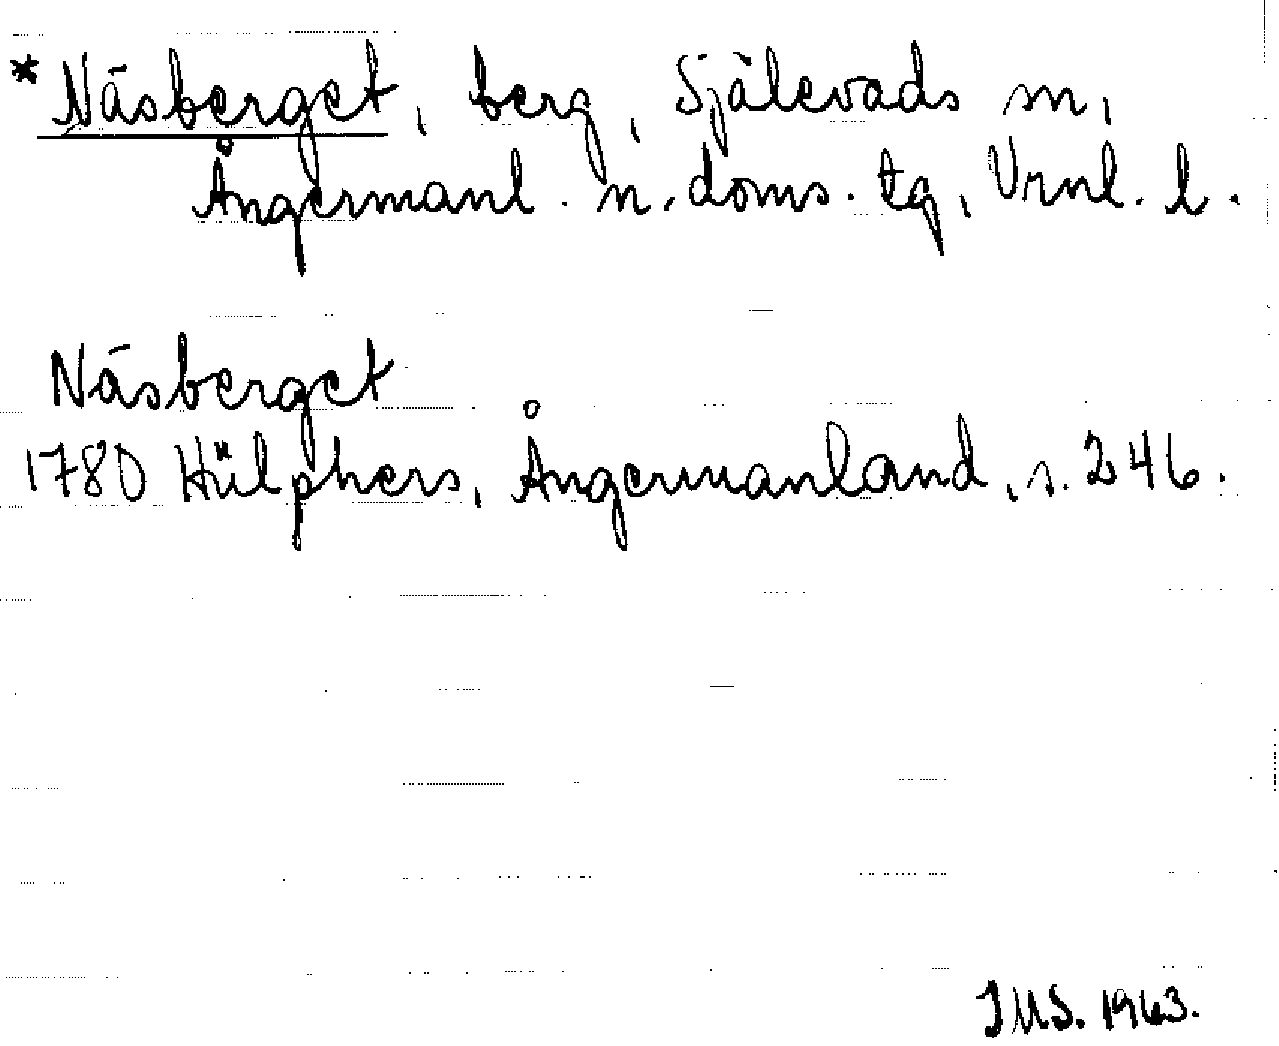 * Näsberget, berg, Själevads sn,
Ångermanl. n. doms. tg, Vrnl. l.
Näsberget
1780 Hülphers, Ångermanland, s. 246.
IMS. 1963.